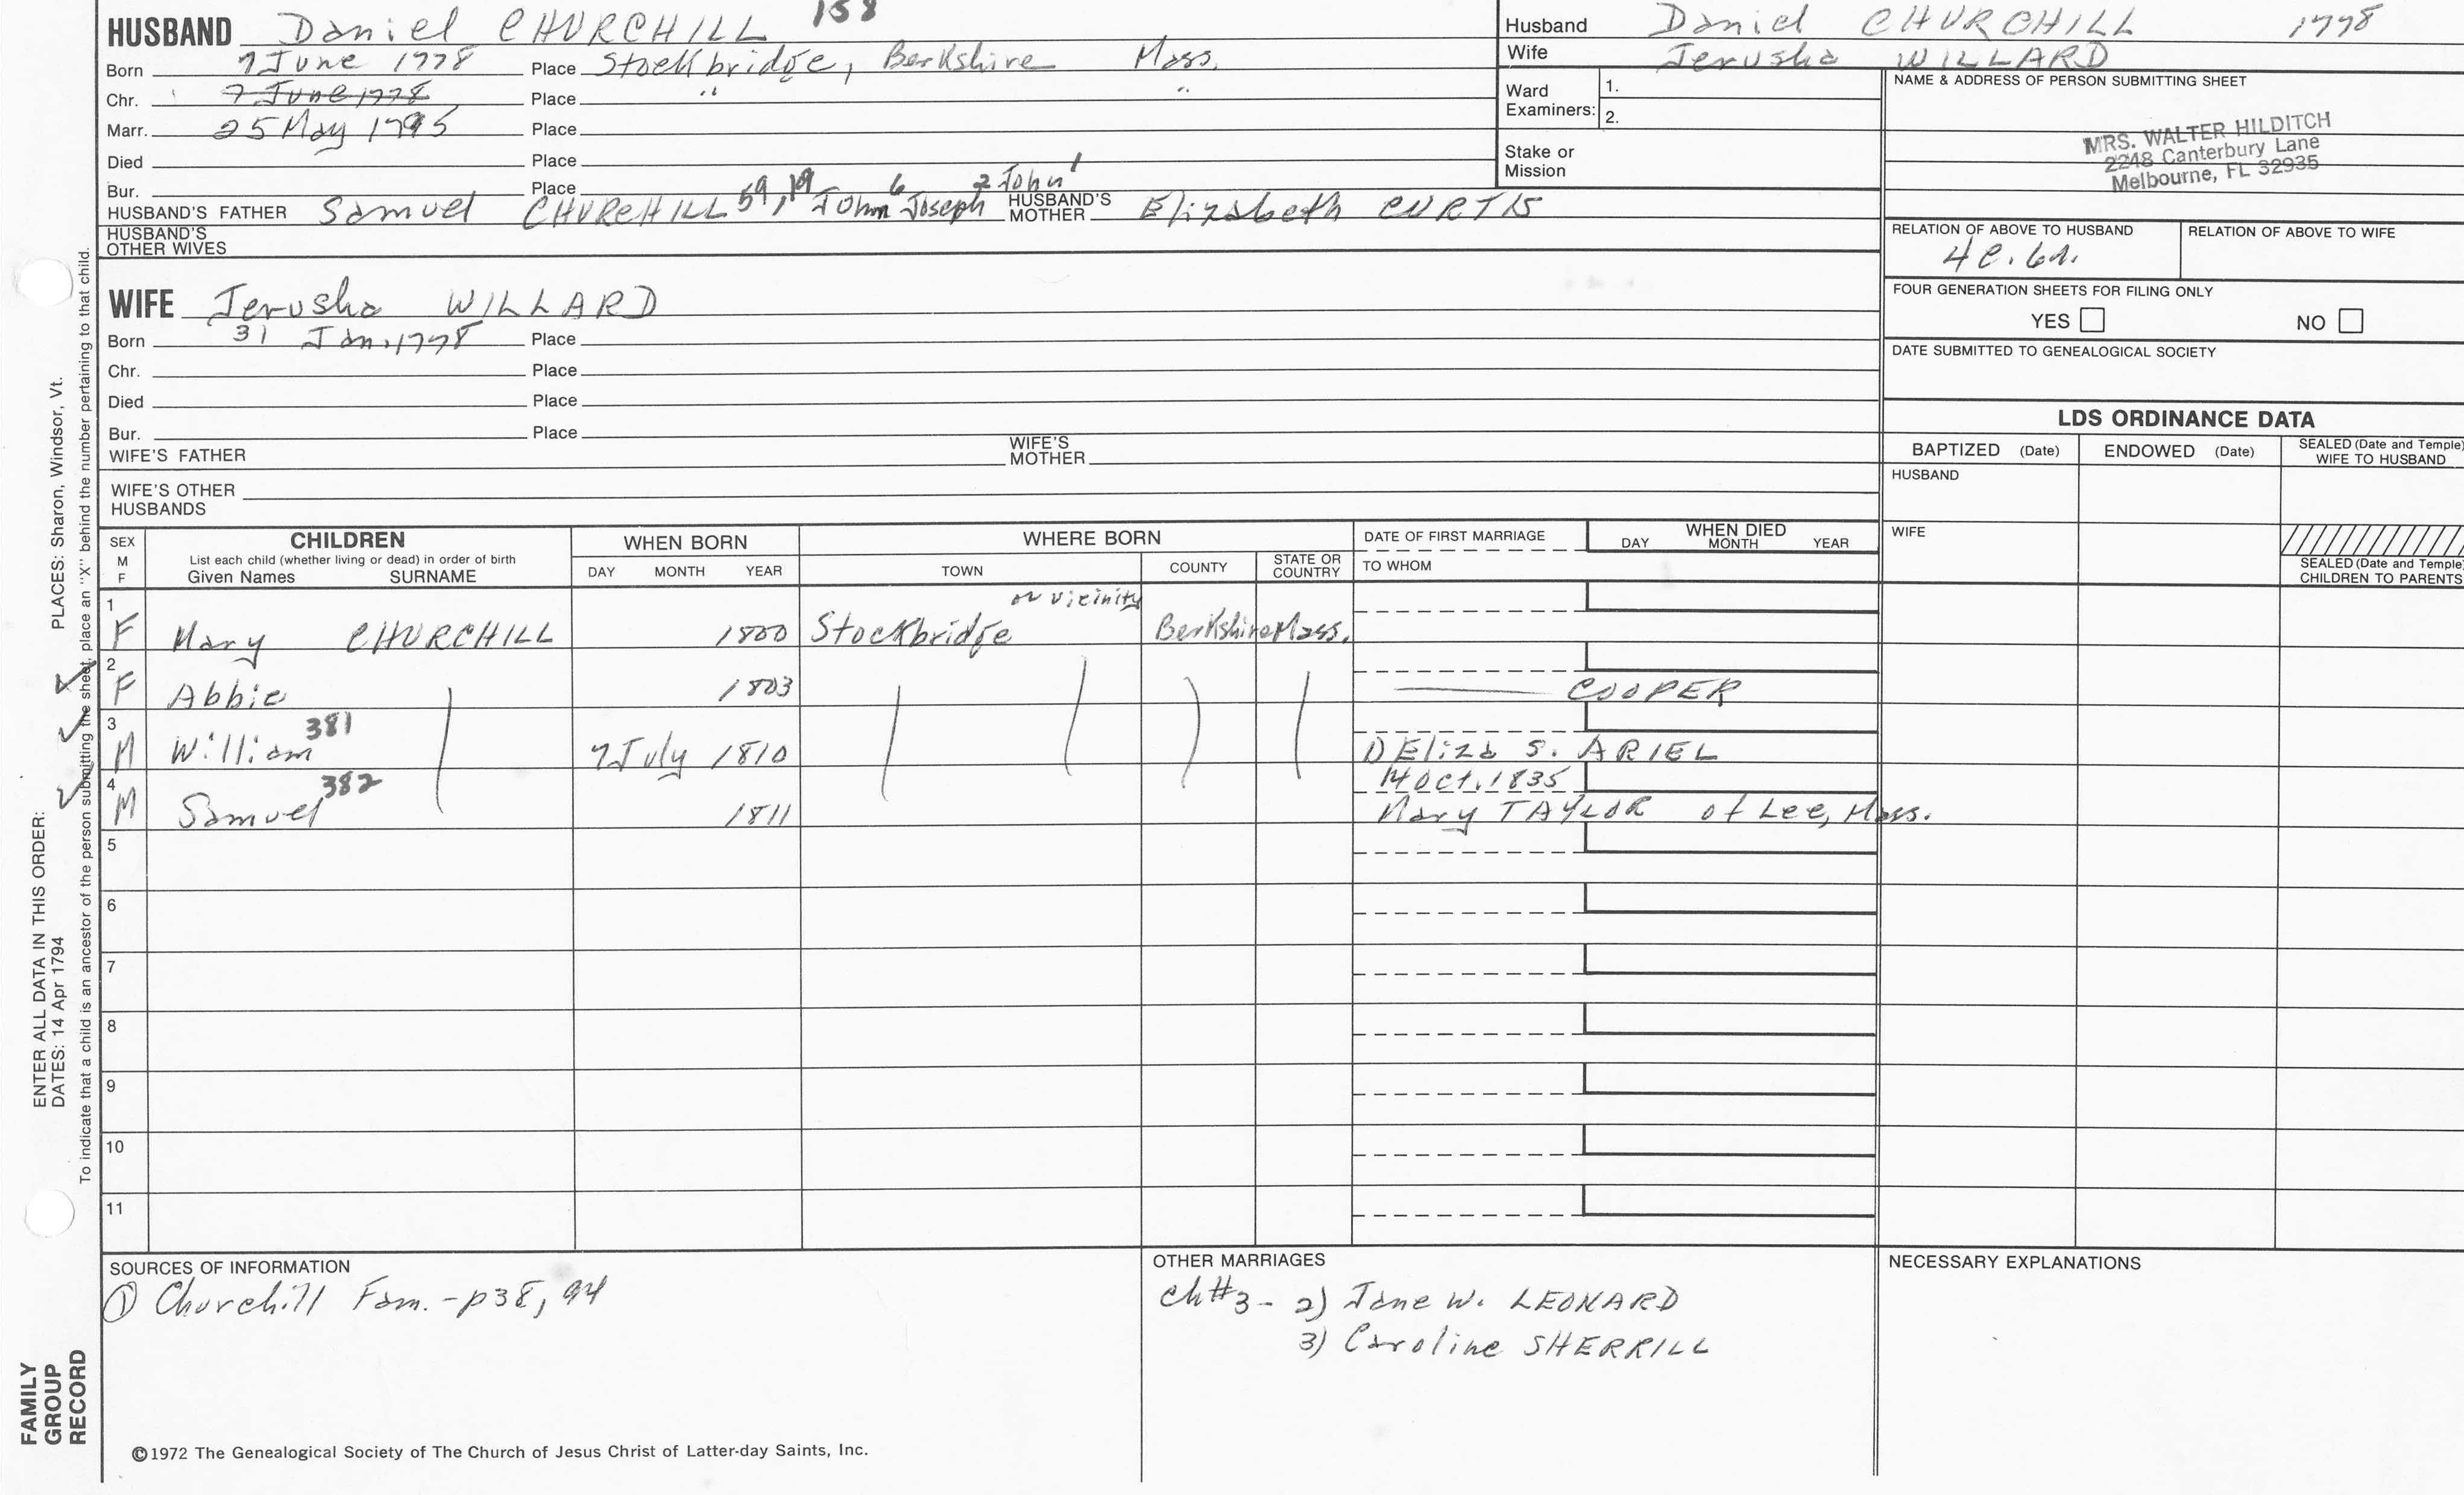 HUSBAND Daniel CHURCHILL 158
Born 7 June 1778 Place Stockbridge, Berkshire Mass.
Chr. 7 June 1778 Place " "
Marr. 25 May 1795 Place
Died Place
Bur. Place
HUSBAND'S FATHER Samuel CHURCHILL 59, 19 John 6 Joseph 2 John 1 HUSBAND'S MOTHER Elizabeth CURTIS
HUSBAND'S OTHER WIVES
Husband Daniel CHURCHILL 1778
Wife Jerusha WILLARD
Ward Examiners: 1.
2.
Stake or Mission
NAME & ADDRESS OF PERSON SUBMITTING SHEET
MRS. WALTER HILDITCH
2248 Canterbury Lane
Melbourne, FL 32935
RELATION OF ABOVE TO HUSBAND RELATION OF ABOVE TO WIFE
FOUR GENERATION SHEETS FOR FILING ONLY
YES NO
DATE SUBMITTED TO GENEALOGICAL SOCIETY
WIFE Jerusha WILLARD
Born 31 Jan. 1778 Place
Chr. Place
Died Place
Bur. Place
WIFE'S FATHER WIFE'S MOTHER
WIFE'S OTHER HUSBANDS
LDS ORDINANCE DATA
BAPTIZED (Date) ENDOWED (Date) SEALED (Date and Temple) WIFE TO HUSBAND
HUSBAND
WIFE
SEALED (Date and Temple) CHILDREN TO PARENTS
SEX M F CHILDREN List each child (whether living or dead) in order of birth Given Names SURNAME
WHEN BORN DAY MONTH YEAR
WHERE BORN TOWN COUNTY STATE OR COUNTRY
DATE OF FIRST MARRIAGE TO WHOM
WHEN DIED DAY MONTH YEAR
1 F Mary CHURCHILL 1800 Stockbridge or vicinity Berkshire Mass.
2 F Abbie 1803 COOPER
3 M William 381 7 July 1810 1) Eliza S. ARIEL
4 M Samuel 382 1811 14 Oct. 1835
Mary TAYLOR of Lee, Mass.
5
6
7
8
9
10
11
SOURCES OF INFORMATION
① Churchill Fam. - p38, 94
OTHER MARRIAGES
Ch#3 - 2) Jane W. LEONARD
3) Caroline SHERRILL
NECESSARY EXPLANATIONS
©1972 The Genealogical Society of The Church of Jesus Christ of Latter-day Saints, Inc.
FAMILY GROUP RECORD
ENTER ALL DATA IN THIS ORDER: PLACES: Sharon, Windsor, Vt.
DATES: 14 Apr 1794
To indicate that a child is an ancestor of the person submitting the sheet, place an "X" behind the number pertaining to that child.